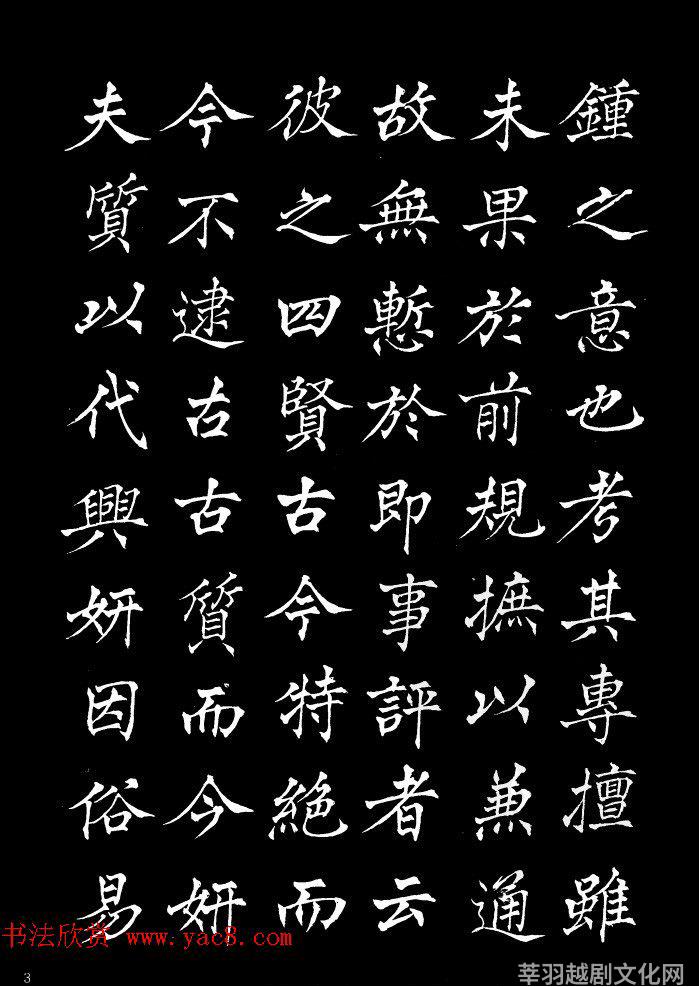 鍾之意也考其專擅雖
未果於前規摭以兼通
故無慙於即事評者云
彼之四賢古今特絕而
今不逮古古質而今妍
夫質以代興妍因俗易
书法欣赏 www.yac8.com
3
莘羽越剧文化网